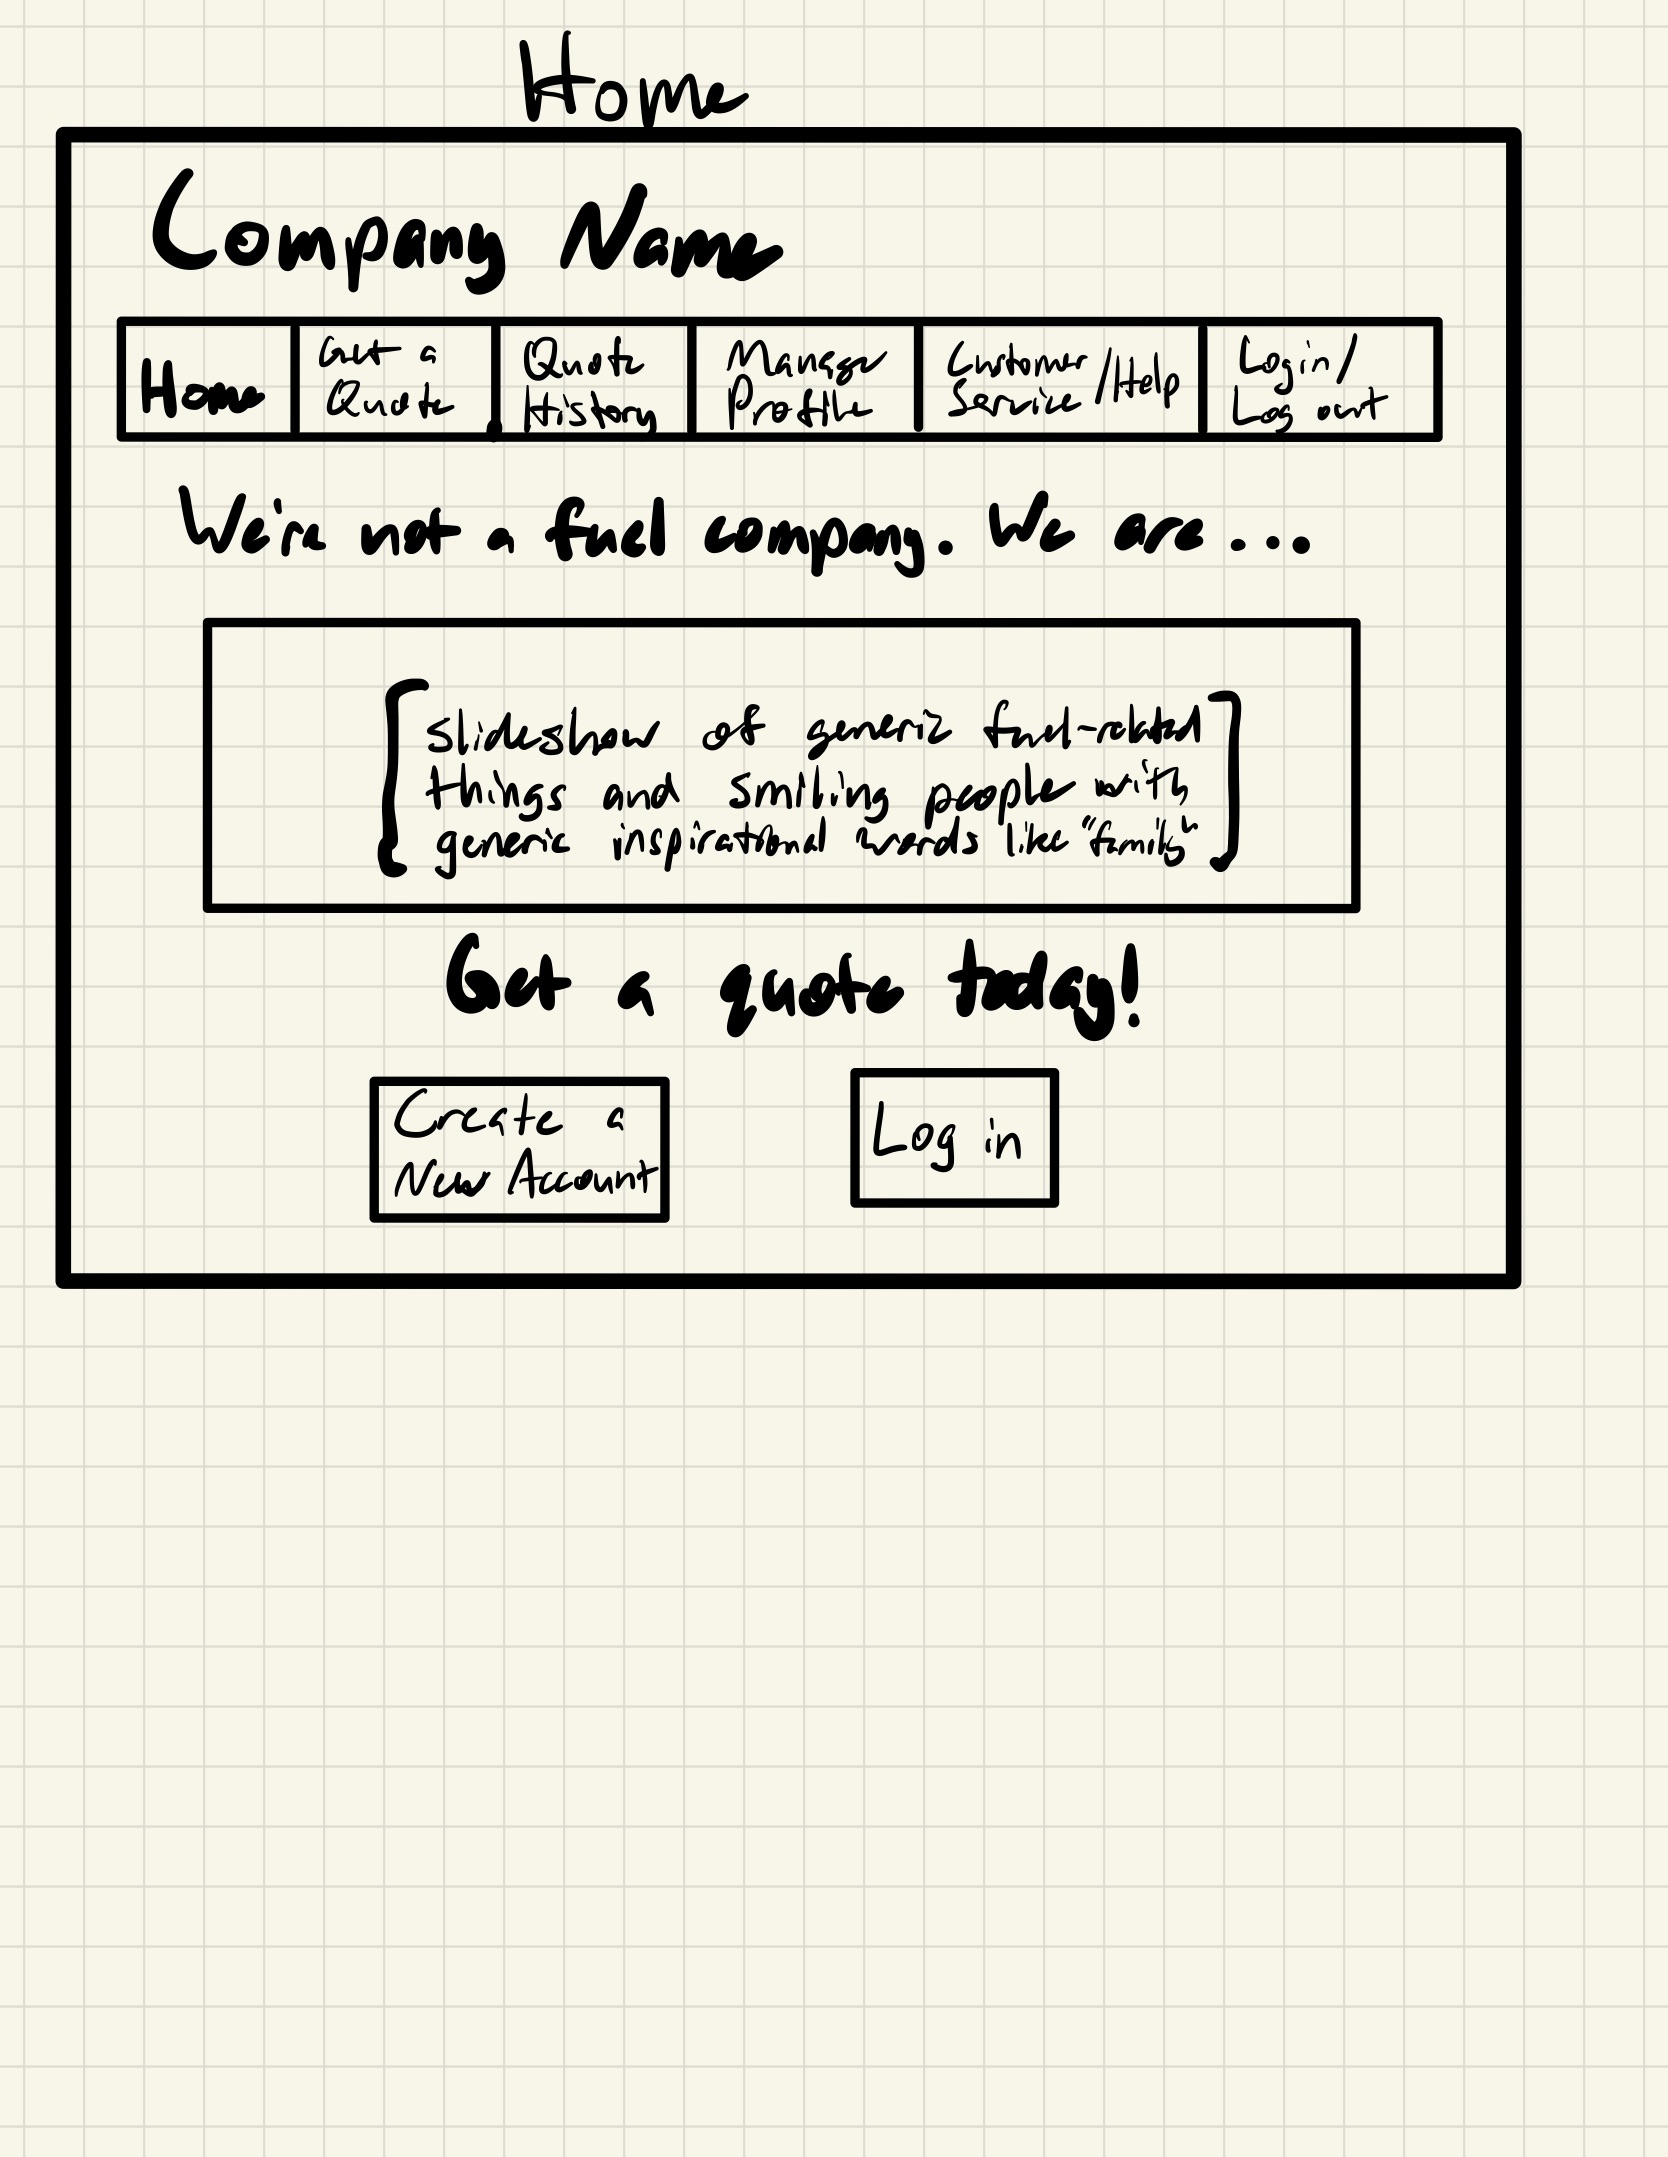 Home
Company Name
Home
Get a
Quote
Quote
History
Manage
Profile
Customer
Service /Help
Login/
Log out
We're not a fuel company. We are ...
[slideshow of generic fuel-related
things and smiling people with
generic inspirational words like "family"]
Get a quote today!
Create a
New Account
Log in